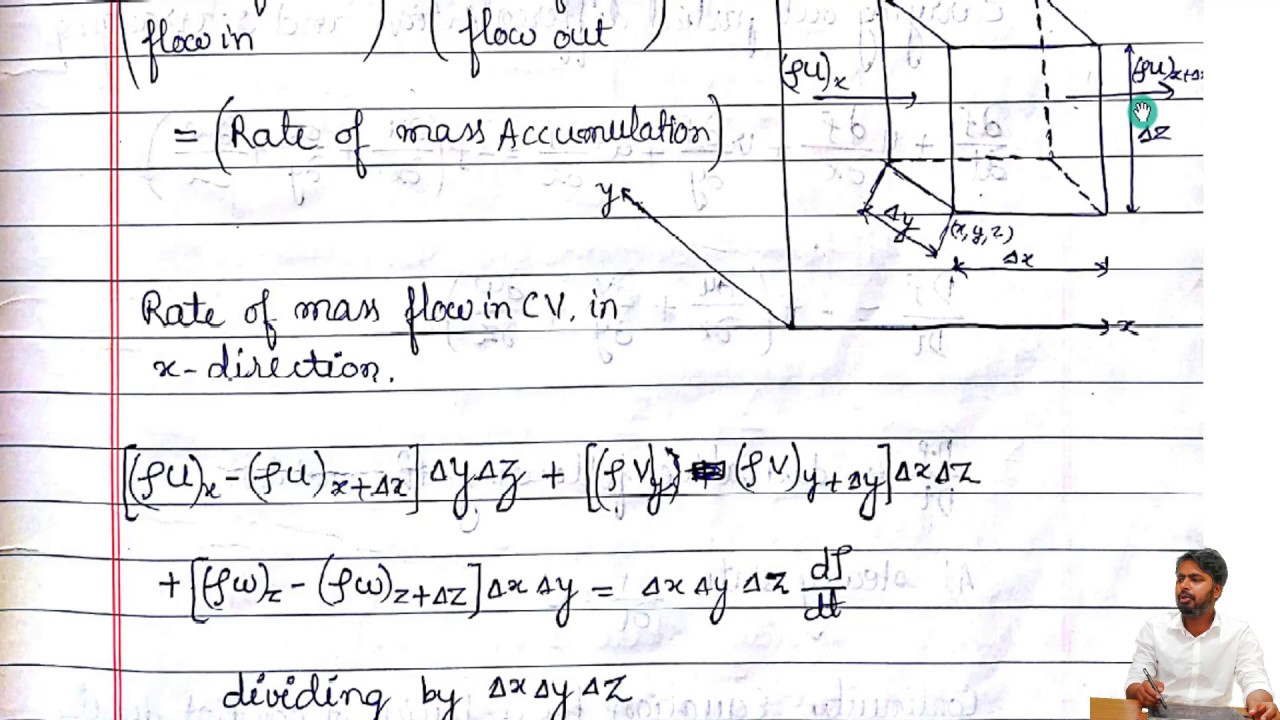 (flow in) (flow out)
= (Rate of mass Accumulation)
(ρu)x
(ρu)x+Δx
Δz
y
Δy
(x,y,z)
Δx
x
Rate of mass flow in CV. in
x-direction.
[(ρu)x - (ρu)x+Δx] Δy Δz + [(ρv)y - (ρv)y+Δy] Δx Δz
+ [(ρω)z - (ρω)z+Δz] Δx Δy = Δx Δy Δz dρ/dt
dividing by Δx Δy Δz